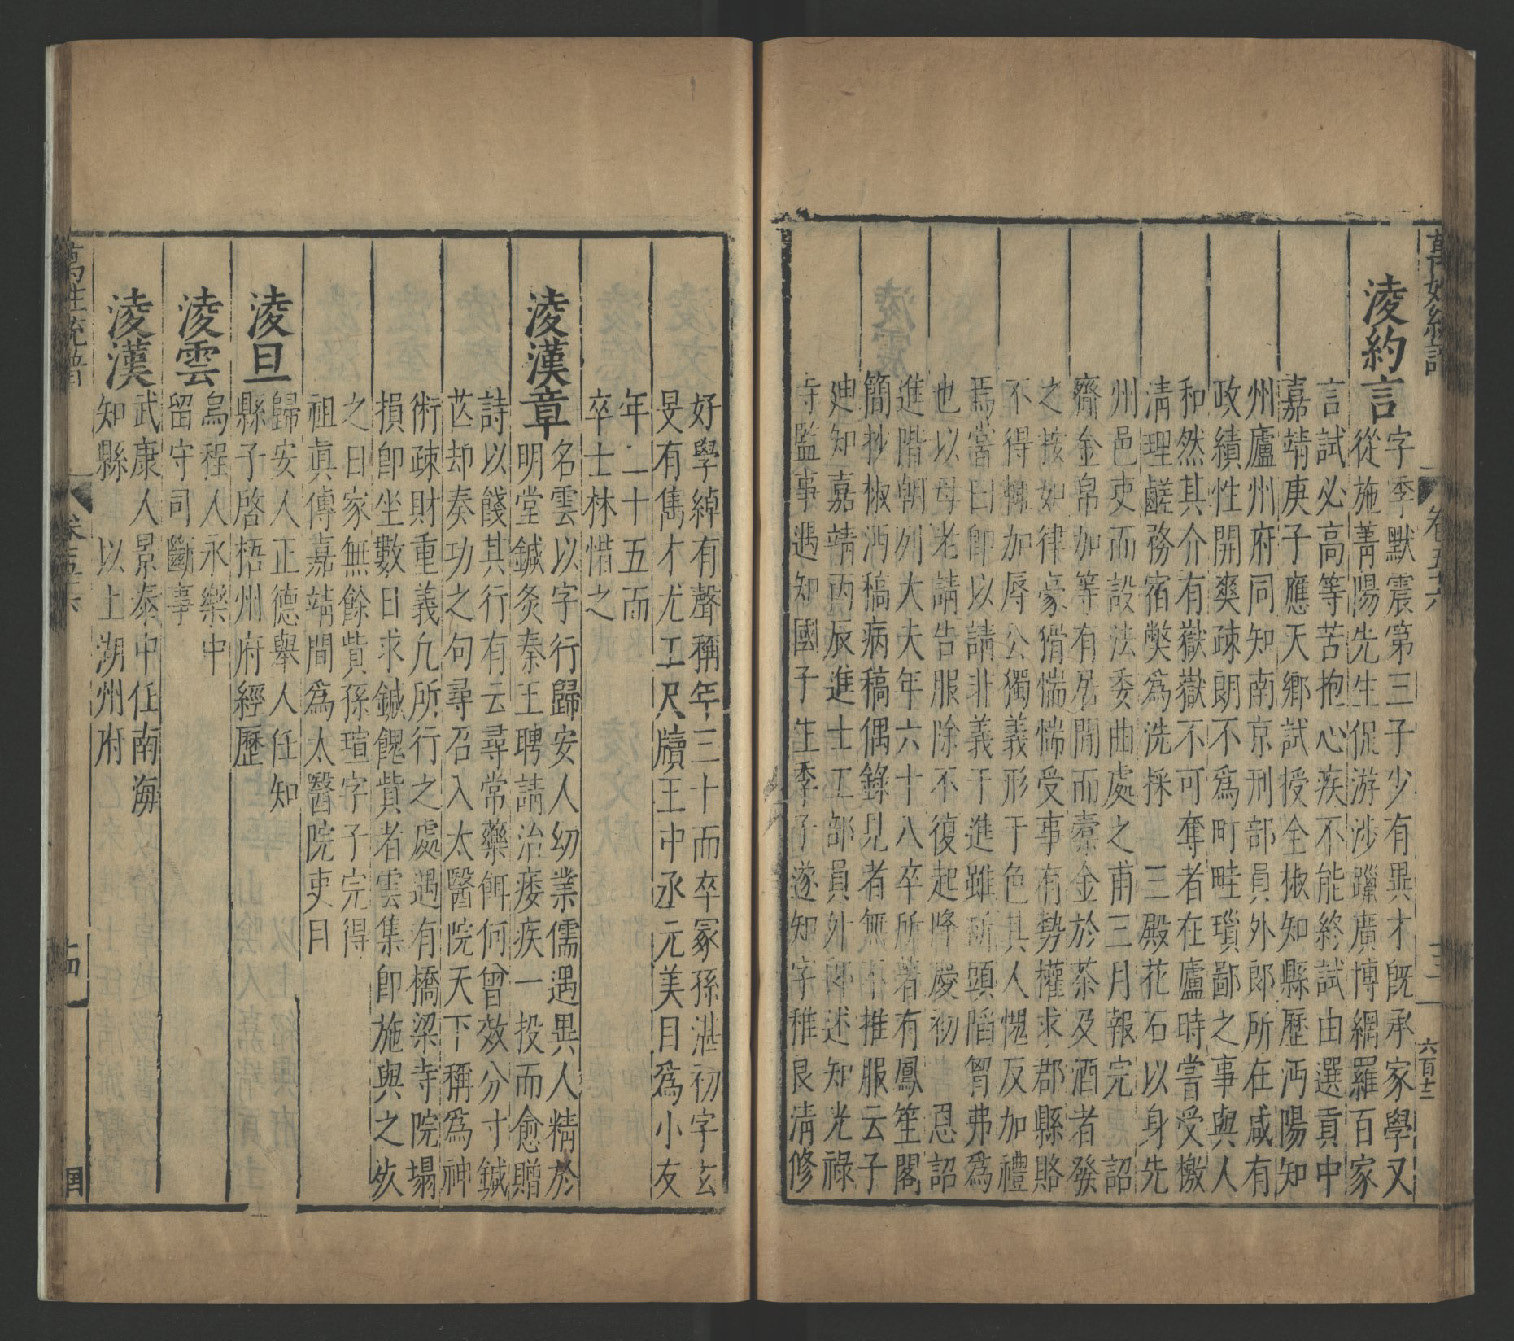 萬姓統譜 卷五十六 十三 六百十二
凌約言
字季默震第三子少有異才旣承家學又
從施菁陽先生侃游涉躐廣博網羅百家
言試必高等苦抱心疾不能終試由選貢中
嘉靖庚子應天鄉試授全椒知縣歷沔陽知
州廬州府同知南京刑部員外郎所在咸有
政績性開爽疎朗不爲町畦瑣鄙之事與人
和然其介有嶽嶽不可奪者在廬時嘗受檄
淸理鹺務宿獘爲洗採 三殿花石以身先
州邑吏而設法委曲處之甫三月報完 詔
齎金帛加等有居閒而橐金於茶及酒者發
之按如律豪猾惴惴受事有勢權求郡縣賂
不得輒加辱公獨義形于色其人愧反加禮
焉當白卽以請非義干進雖斫頭陷胷弗爲
也以母老請告服除不復起隆慶初 恩詔
進階朝列大夫年六十八卒所著有鳳笙閣
簡抄椒沔稿病稿偶錄見者無不推服云子
廸知嘉靖丙辰進士工部員外郎述知光祿
寺監事遇知國子生季子遂知字稚良淸修
好學綽有聲稱年三十而卒冢孫湛初字玄
旻有雋才尤工尺牘王中丞元美目爲小友
年二十五而
卒士林惜之
凌漢章
名雲以字行歸安人幼業儒遇異人精於
明堂鍼灸秦王聘請治痿疾一投而愈贈
詩以餞其行有云尋常藥餌何曾效分寸鍼
芤却奏功之句尋召入太醫院天下稱爲神
術疎財重義凡所行之處遇有橋梁寺院塌
損卽坐數日求鍼餽貲者雲集卽施與之歿
之日家無餘貲孫瑄字子完得
祖眞傳嘉靖間爲太醫院吏目
凌旦
歸安人正德舉人任知
縣子啓梧州府經歷
凌雲
烏程人永樂中
留守司斷事
凌漢
武康人景泰中任南海
知縣 以上湖州府
萬姓統譜 卷五十六 十四